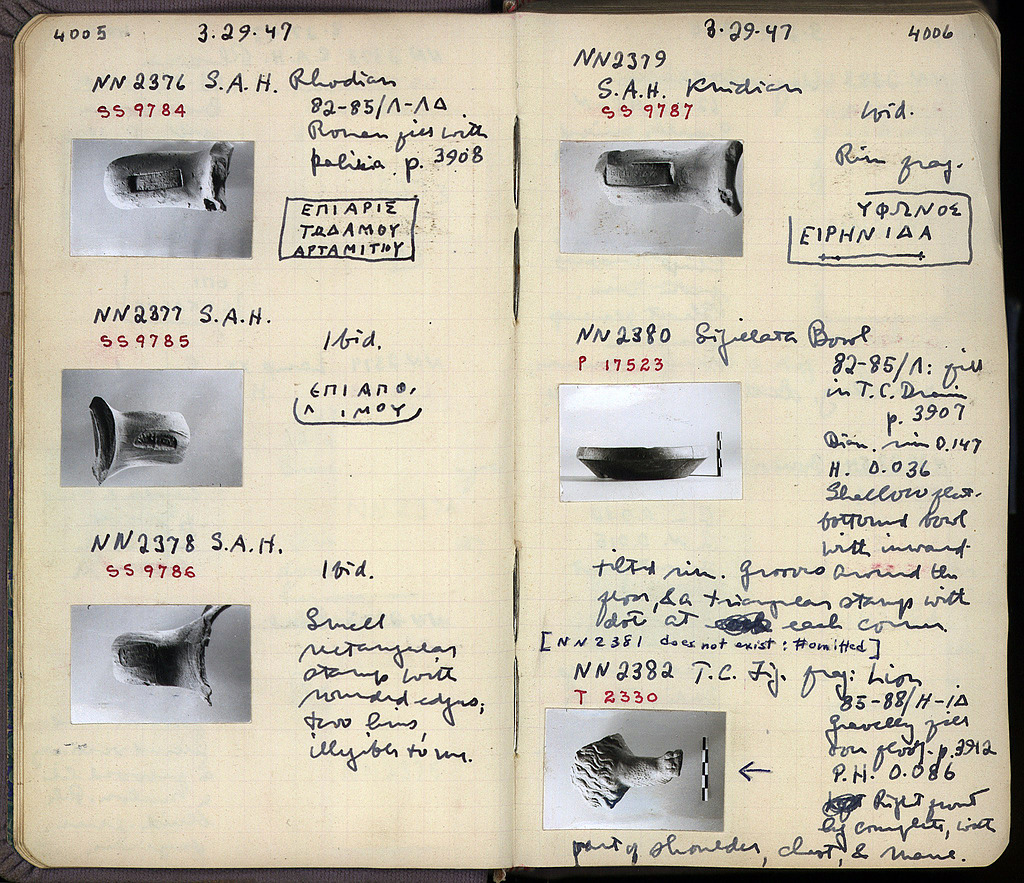 4005 3.29.47
NN2376 S.A.H. Rhodian
SS 9784
82-85/Λ-ΛΔ
Roman fill with
p. 3908
ΕΠΙΑΡΙΣ
ΤΩΔΑΜΟΥ
ΑΡΤΑΜΙΤΙΟΥ
NN2377 S.A.H.
SS 9785
Ibid.
ΕΠΙΑΠΟ.
Λ ΙΜΟΥ
NN2378 S.A.H.
SS 9786
Ibid.
Small
rectangular
stamp with
rounded edges;
two lines
illegible to me.
3.29.47 4006
NN2379
S.A.H. Knidian
SS 9787
Ibid.
Rim frag.
ΥΦΩΝΟΣ
ΕΙΡΗΝΙΔΑ
NN2380 Sigillata Bowl
P 17523
82-85/Λ: fill
in T.C. Drain
p. 3907
Diam. rim 0.147
H. 0.036
Shallow flat-
bottomed bowl
with inward-
tilted rim. Grooves around the
floor, & a triangular stamp with
dots at each corner.
[NN 2381 does not exist: # omitted]
NN2382 T.C. Fig. frag: Lion
T 2330
85-88/Η-ΙΔ
Gravelly fill
on floor. p. 3912
P.H. 0.086
Right front
leg complete, with
part of shoulder, chest, & mane.